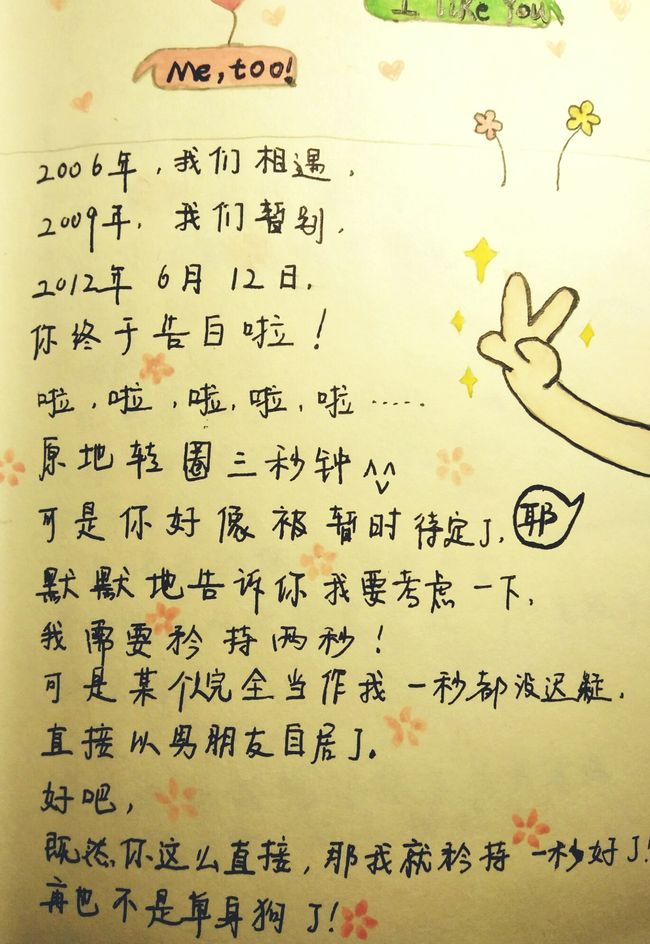 I like You
Me, too!
2006年，我们相遇，
2009年，我们暂别，
2012年 6月 12日，
你终于告白啦！
啦，啦，啦，啦，啦……
原地转圈三秒钟 ^_^
可是你好像被暂时待定了，耶
默默地告诉你我要考虑一下，
我需要矜持两秒！
可是某个人完全当作我一秒都没迟疑，
直接以男朋友自居了。
好吧，
既然你这么直接，那我就矜持一秒好了！
再也不是单身狗了！